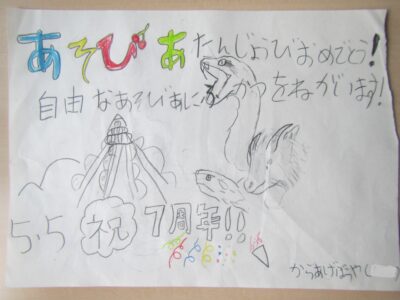 あそびあたんじょうびおめでとう!
自由なあそびあにふっかつをねがいます!
5.5 祝 7周年!!
からあげぼうや(